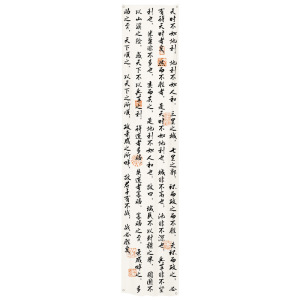 天时不如地利，地利不如人和。三里之城，七里之郭，环而攻之而不胜。夫环而攻之，必
有得天时者矣，然而不胜者，是天时不如地利也。城非不高也，池非不深也，兵革非不坚
利也，米粟非不多也，委而去之，是地利不如人和也。故曰，域民不以封疆之界，固国不
以山溪之险，威天下不以兵革之利。得道者多助，失道者寡助。寡助之至，亲戚畔之，多
助之至，天下顺之。以天下之所顺，攻亲戚之所畔，故君子有不战，战必胜矣。